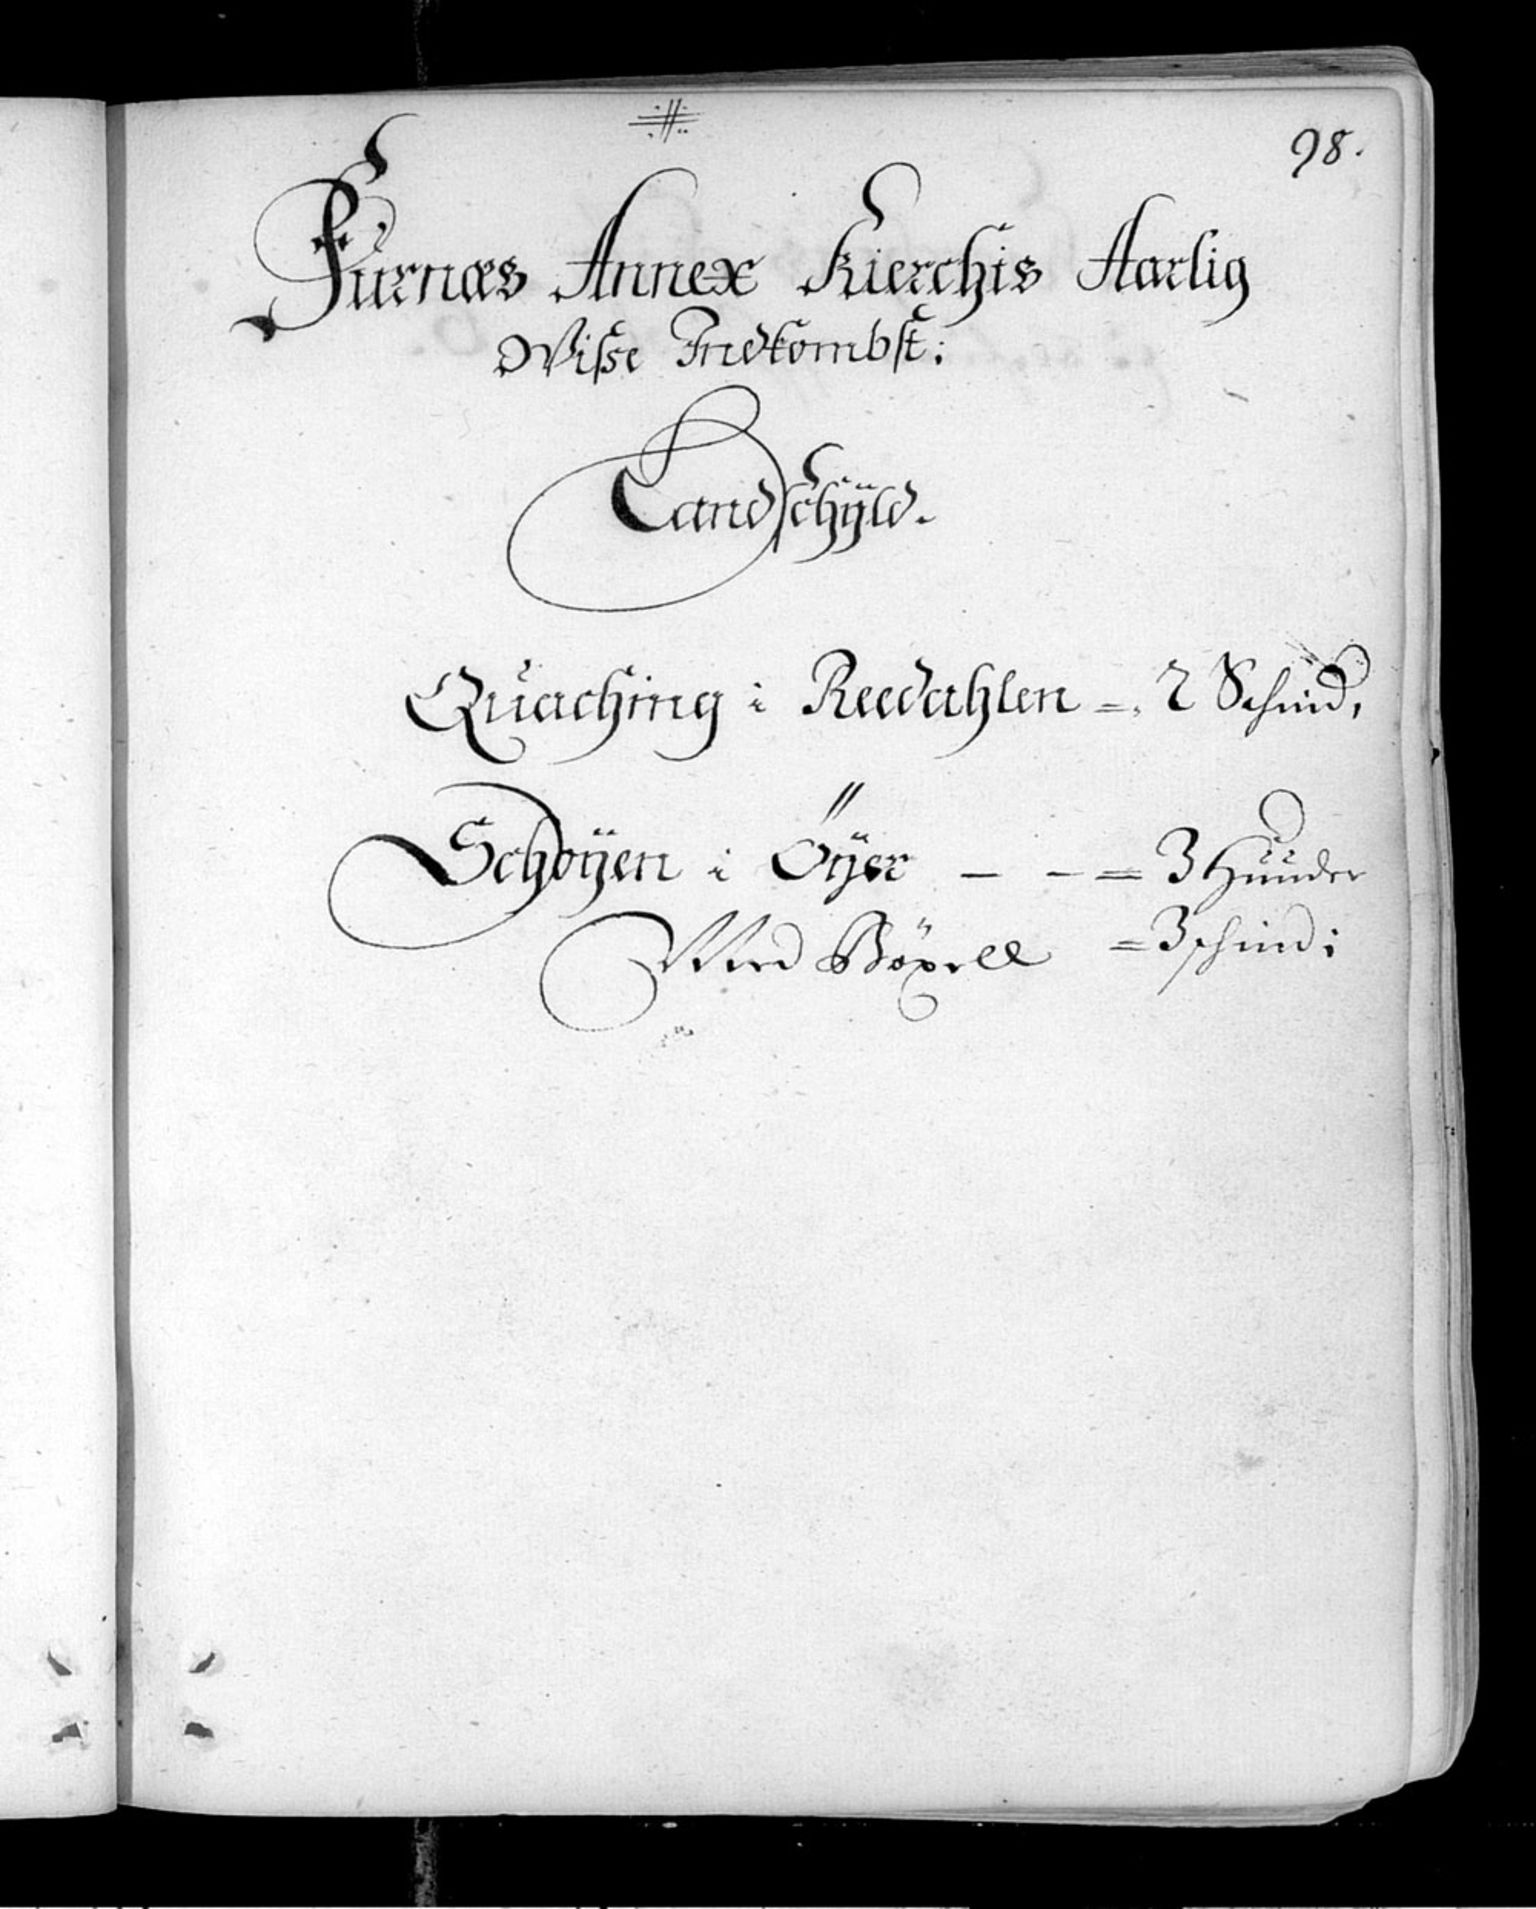 98.
Furnæs Annex Kierchis Aarlig
Wisse Indkombst:
Landschÿld.
Quaching i Reedahlen = 2 Schind,
Schoÿen i Öÿer — — = 3 Huuder
Med Böxell = 3 schind: